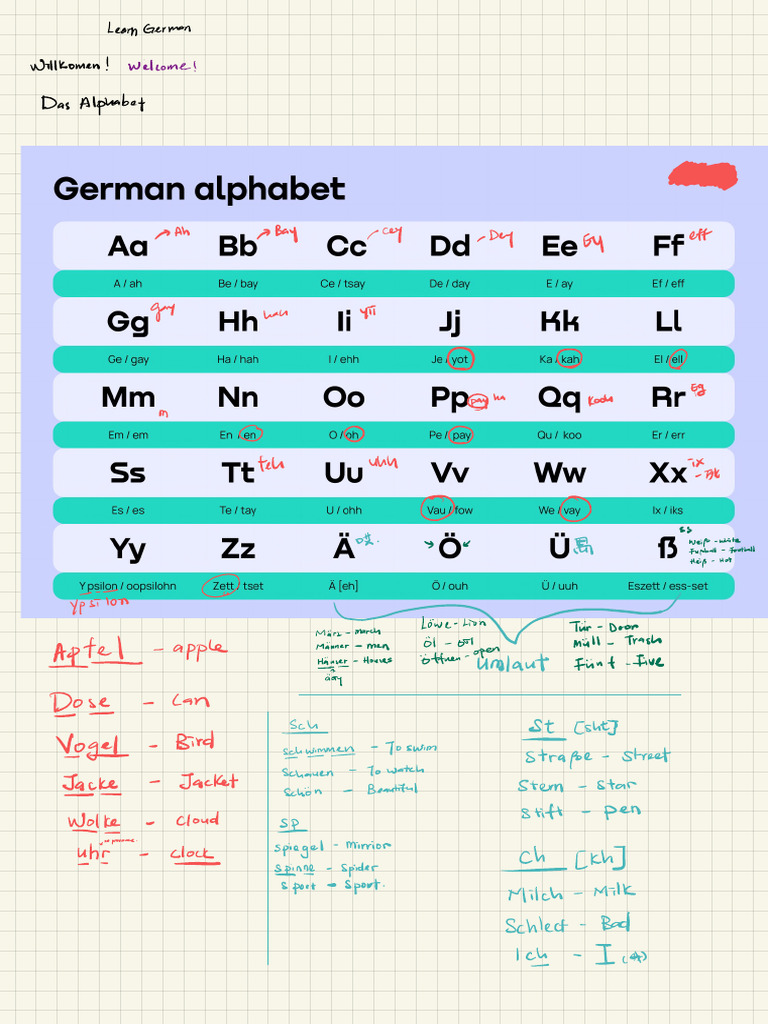 Learn German
Willkomen! Welcome!
Das Alphabet
German alphabet
Aa → Ah Bb → Bay Cc - cey Dd - Dey Ee Ff eff
A / ah Be / bay Ce / tsay De / day E / ay Ef / eff
Gg gay Hh Ii Jj Kk Ll
Ge / gay Ha / hah I / ehh Je / yot Ka / kah El / ell
Mm m Nn Oo Pp pay Qq Rr
Em / em En / en O / oh Pe / pay Qu / koo Er / err
Ss Tt teh Uu uhh Vv Ww Xx - ix
Es / es Te / tay U / ohh Vau / fow We / vay Ix / iks
Yy Zz Ä Ö Ü ß ss
Weiß - white
Fußball - football
Heiß - Hot
Ypsilon / oopsilohn Zett / tset Ä [eh] Ö / ouh Ü / uuh Eszett / ess-set
Ypsilon
umlaut
März - march
Männer - men
Häuser - Houses
Löwe - Lion
Öl - oil
Öffnen - open
Tür - Door
Müll - Trash
Fünf - Five
Apfel - apple
Dose - can
Vogel - Bird
Jacke - Jacket
Wolke - cloud
uhr - clock
Sch
schwimmen - To swim
schauen - To watch
schön - Beautiful
sp
spiegel - mirrior
spinne - spider
sport - sport.
St [sht]
straße - street
stern - star
stift - pen
ch [kh]
Milch - Milk
Schlect - Bad
Ich - I